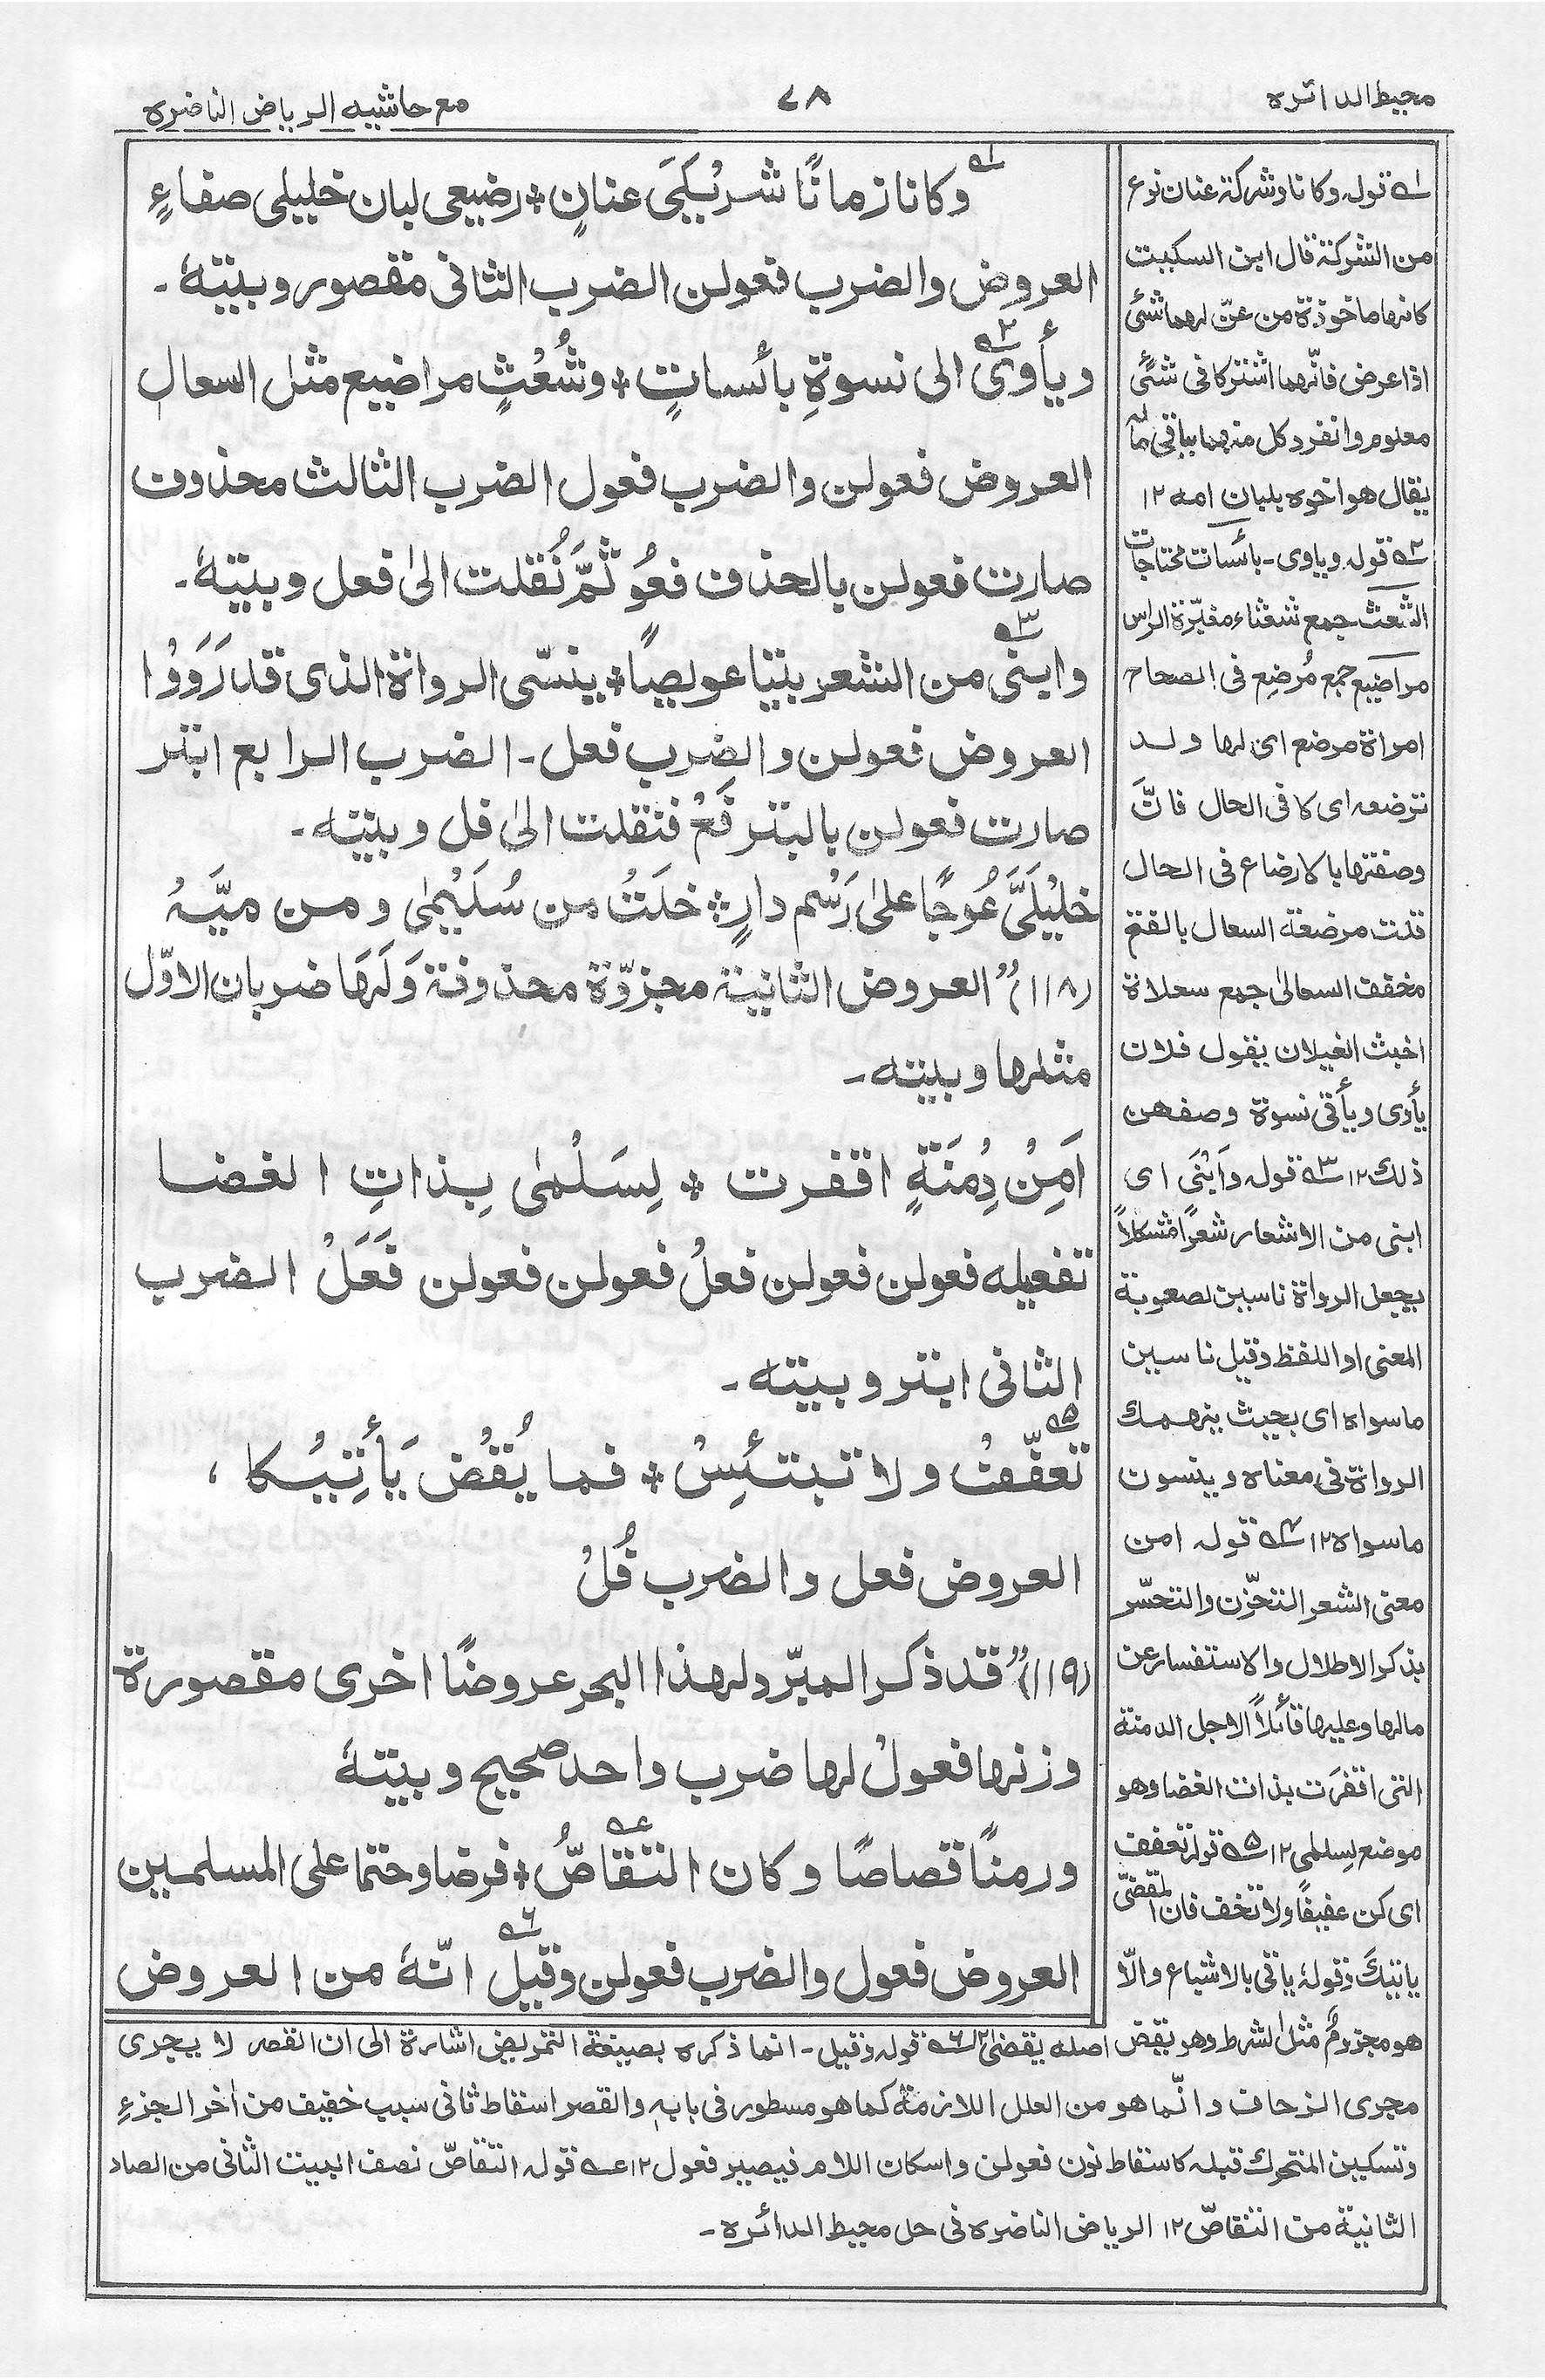 محيط الدائره
٧٨
مع حاشيه الرياض الناضره
وكانا زمانًا شريْكَيَ عنانٍ * رضيعى لبان خليلى صفاءٍ
العروض والضرب فعولن الضرب الثانى مقصور وبيتهٗ۔
ويأوى الى نسوةٍ بائساتٍ * وشُعْثٍ مراضيع مثل السعال
العروض فعولن والضرب فعول الضرب الثالث محذوف
صارت فعولن بالحذف فعُو ثمَّ نُقلت الىٰ فعل وبيتهٗ۔
وابنى من الشعر بيتًا عويصًا * ينسّى الرواة الذى قد رَوَوْا
العروض فعولن والضرب فعل۔ الضرب الرابع ابتر
صارت فعولن بالبتر فَعْ فنقلت الىٰ فل وبيته۔
خليْلَيَّ عُوجًا علىٰ رَسْم دارٍ * خلَتْ من سُلَيْمىٰ ومن ميَّهْ
(١١٨) العروض الثانية مجزوّة محذوفة وَلَهَا ضربان الاوّل
مثلها وبيته۔
اَمِنْ دِمْنَةٍ اقفرت * لِسَلْمىٰ بِذاتِ الغضا
تفعيله فعولن فعولن فعلْ فعولن فعولن فَعَلْ الضرب
الثانى ابتر وبيته۔
تعفّفْ ولا تبتئِسْ * فما يُقْضَ يَأتِيْكا،
العروض فعل والضرب فُلْ
(١١٩) قد ذكر المبرّد لهذا البحر عروضًا اخرى مقصورة
وزنها فعولْ لها ضرب واحد صحيح وبيتهٗ
ورمنًا قصاصًا وكان التقاصُّ * فرضا وحتما على المسلمين
العروض فعول والضرب فعولن وقيل انّهٗ من العروض
١ قوله وكانا وشركة عنان نوع
من الشركة قال ابن السكيت
كانها ماخوذة من عنّ لهما شئ
اذا عرض فانّهما اشتركا فى شئ
معلوم وانفرد كل منهما بباقى ماله
يقال هو اخوه بلبان امه ١٢
٢ قوله وياوى۔ بائسات محتاجات
الشعث جمع شعثاء مغبّرة الراس
مراضيع جمع مُرضِع فى الصحاح
امراة مرضع اى لها ولد
ترضعه اى كا فى الحال فانَّ
وصفتها بالارضاع فى الحال
قلت مرضعة السعال بالفتح
مخفف السعالى جمع سعلاة
اخبث الغيلان يقول فلان
يأوى ويأتى نسوة وصفهن
ذلك ١٢ ٣ قوله وَابْنَى اى
ابنى من الاشعار شعرًا مشكلاً
يجعل الرواة ناسين لصعوبة
المعنى او اللفظ وقيل ناسين
ماسواه اى بحيث ينهمك
الرواة فى معناه وينسون
ماسواه ١٢ ٤ قوله امن
معنى الشعر التحزّن والتحسّر
بذكر الاطلال والاستفسار عن
مالها وعليها قائلاً الاجل الدمنة
التى اقفرَت بذات الغضا وهو
موضع لسلمى ١٢ ٥ قوله تعفف
اى كن عفيفًا ولا تخف فان المقضىّ
ياتيكَ وقولهٗ ياتى بالاشباع والّا
هو مجزومٌ مثل الشرط وهو يقض اصله يقضى ١٢ ٦ قوله وقيل۔ انما ذكره بصيغة التمريض اشارة الى ان القصر لا يجرى
مجرى الزحاف وانّما هو من العلل اللازمة كما هو مسطور فى بابه والقصر اسقاط ثانى سبب خفيف من أخر الجزءِ
وتسكين المتحرك قبله كاسقاط نون فعولن واسكان اللام فيصير فعول ١٢ عه قوله التقاصّ نصف البيت الثانى من الصاد
الثانية من التقاصّ ١٢ الرياض الناضره فى حل محيط الدائره۔